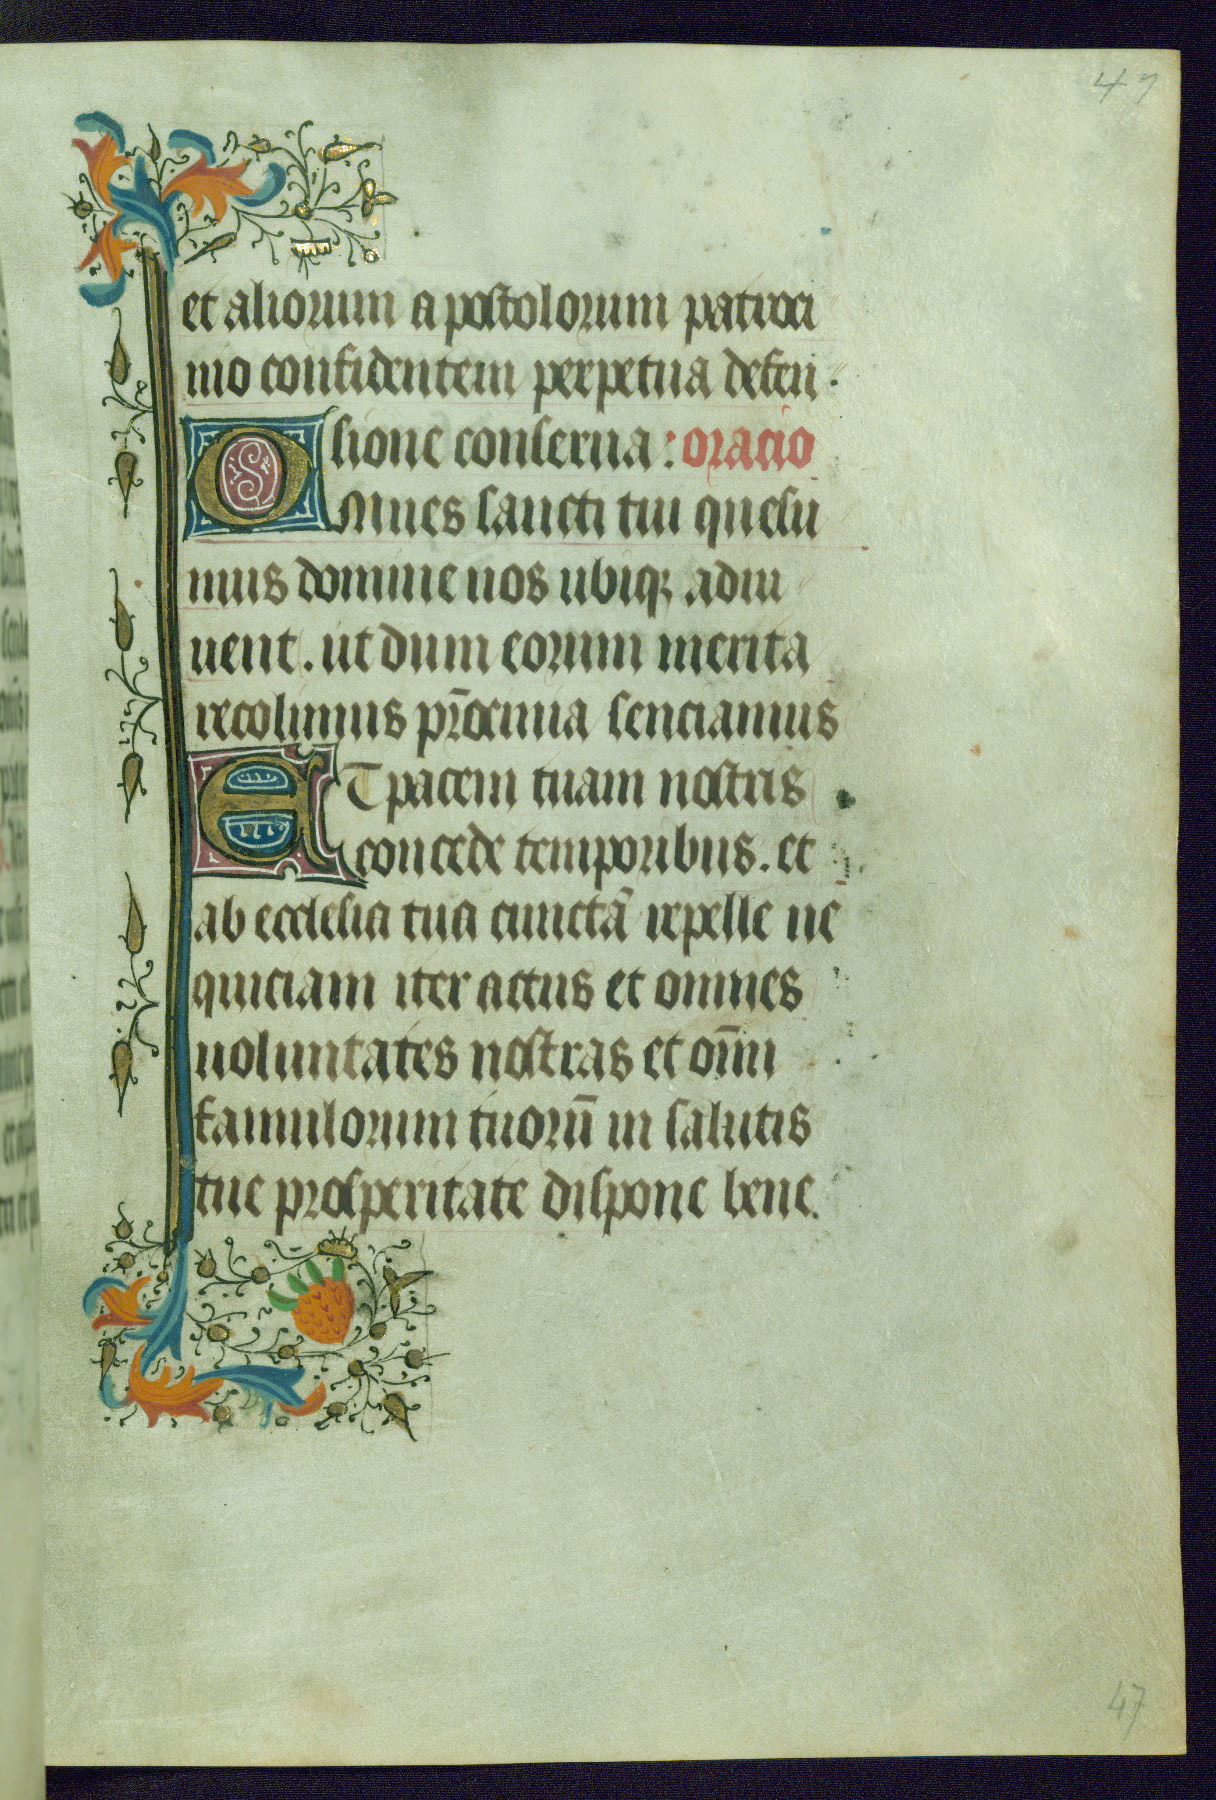 47
et aliorum apostolorum patroci
nio confidentem perpetua defen
sione conserua : oracio
Omnes sancti tui quesu
mus domine nos ubiq, adiu
uent. ut dum eorum merita
recolimus pr̄ocinia senciamus
ET pacem tuam nostris
concede temporibus. et
ab ecclesia tua cunctā repelle ne
quiciam iter actus et omnes
uoluntates nostras et om̄i
famulorum tuorū in salutis
tue prosperitate dispone bene.
47